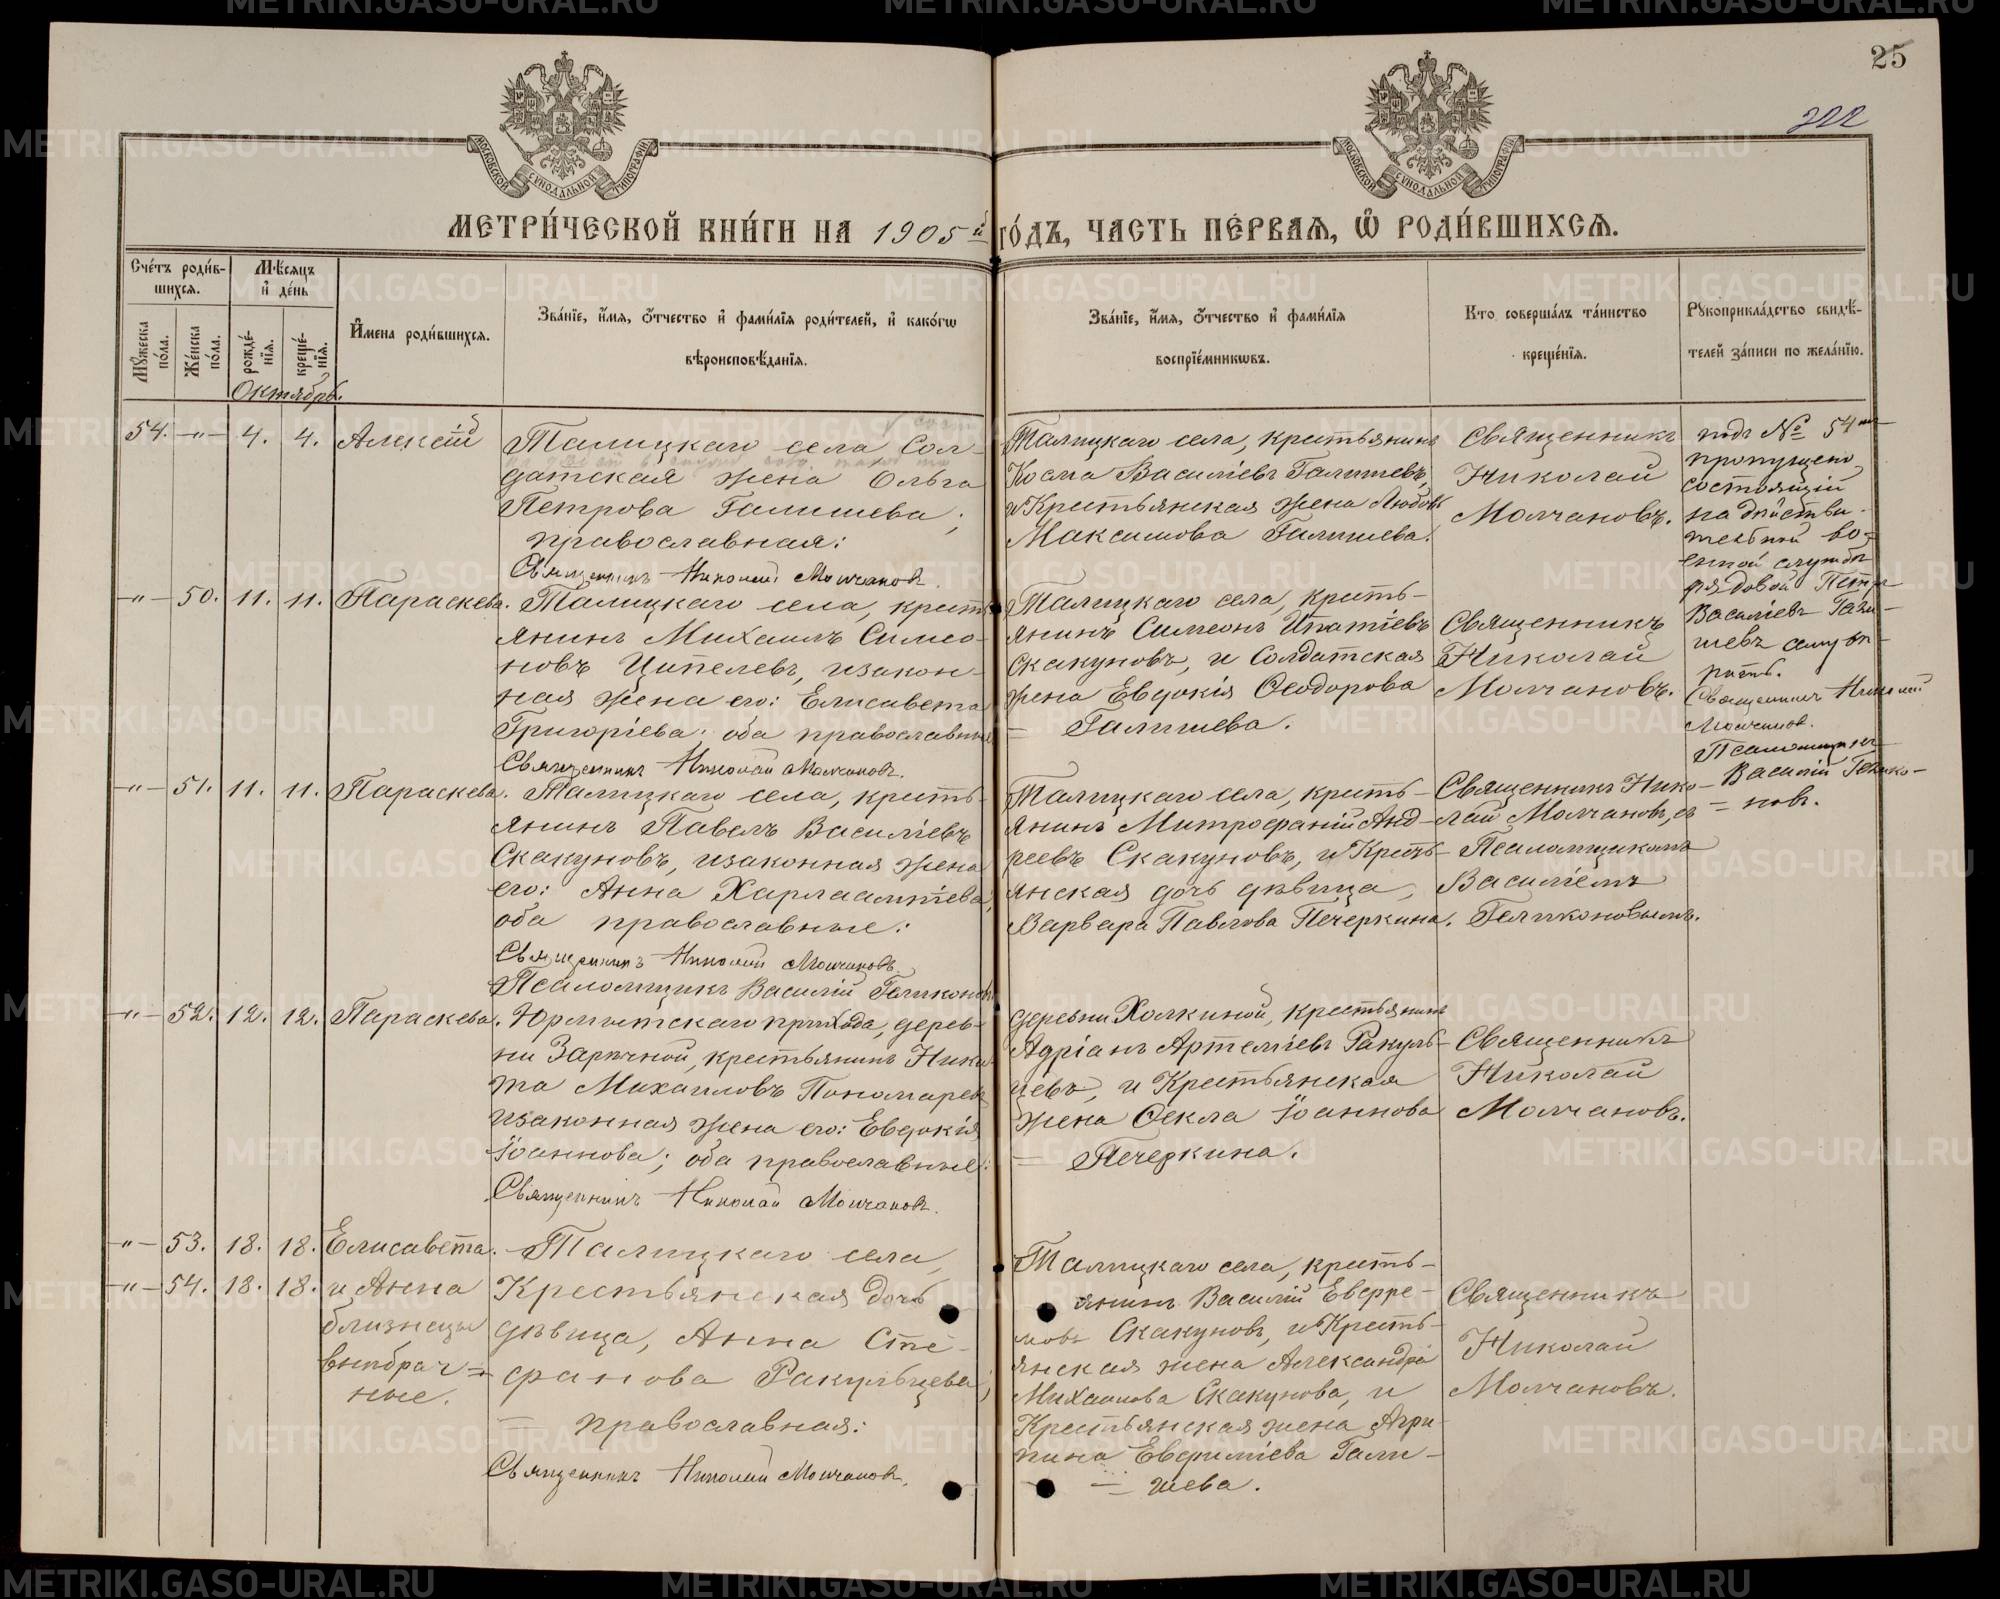 25
222
МОСКОВСКОЙ СѴНОДАЛЬНОЙ ТИПОГРАФІИ
МОСКОВСКОЙ СѴНОДАЛЬНОЙ ТИПОГРАФІИ
МЕТРИ́ЧЕСКОЙ КНИ́ГИ НА 1905й ГО́ДЪ, ЧАСТЬ ПЕ́РВАЯ, Ѽ РОДИ́ВШИХСЯ.
Сче́тъ роди́в-
шихся.
Мꙋ́жеска по́ла.
Же́нска по́ла.
Мѣ́сяцъ
и҆ де́нь
рожде́нїя.
креще́нїя.
Октябрь.
И҆мена роди́вшихся.
Зва́нїе, и҆́мя, ѻ҆́тчество и҆ фами́лїя роди́телей, и҆ како́гѡ
вѣроисповѣ́данїя.
Зва́нїе, и҆́мя, ѻ҆́тчество и҆ фами́лїя
воспрїе́мникѡвъ.
Кто соверша́лъ та́инство
креще́нїя.
Рꙋкоприкла́дство свидѣ́-
телей за́писи по жела́нїю.
54. —"— 4. 4. Алексій
Талицкаго села Сол-
датская жена Ольга
Петрова Галишева;
православная:
Священникъ Николай Молчановъ.
Талицкаго села, крестьянинъ
Косма Василіевъ Галишевъ,
и Крестьянская жена Любовь
Максимова Галишева.
Священникъ
Николай
Молчановъ.
подъ № 54мъ
пропущено
состоящій
на дѣйстви-
тельной во-
енной службѣ
рядовой Петръ
Василіевъ Гали-
шевъ сему вѣ-
рить.
Священникъ Николай
Молчановъ.
Псаломщикъ
Василій Гелико-
= новъ.
—"— 50. 11. 11. Параскева.
Талицкаго села, кресть-
янинъ Михаилъ Симео-
новъ Ципелевъ, и закон-
ная жена его: Елисавета
Григоріева; оба православные
Священникъ Николай Молчановъ.
Талицкаго села, кресть-
янинъ Симеонъ Ипатіевъ
Скакуновъ, и Солдатская
жена Евдокія Ѳеодорова
= Галишева.
Священникъ
Николай
Молчановъ.
—"— 51. 11. 11. Параскева.
Талицкаго села, кресть-
янинъ Павелъ Василіевъ
Скакуновъ, и законная жена
его: Анна Харлампіева;
оба православные:
Священникъ Николай Молчановъ.
Псаломщикъ Василій Геликоновъ
Талицкаго села, кресть-
янинъ Митрофаній Анд-
реевъ Скакуновъ, и Кресть-
янская дочь дѣвица,
Варвара Павлова Печеркина.
Священникъ Нико-
лай Молчановъ, съ
Псаломщикомъ
Василіемъ
Геликоновымъ.
—"— 52. 12. 12. Параскева.
Юрмытскаго прихода, дерев-
ни Зарѣчной, крестьянинъ Ники-
та Михаиловъ Пономаревъ
и законная жена его: Евдокія
Іоаннова; оба православные:
Священникъ Николай Молчановъ.
деревни Холкиной, крестьянинъ
Адріанъ Артеміевъ Ракуль-
цевъ, и Крестьянская
жена Ѳекла Іоаннова
= Печеркина.
Священникъ
Николай
Молчановъ.
—"— 53. 18. 18. Елисавета.
—"— 54. 18. 18. и Анна
близнецы
внѣбрач-
ные.
Талицкаго села,
Крестьянская дочь
дѣвица, Анна Сте-
фанова Ракульцева;
= православная:
Священникъ Николай Молчановъ.
Талицкаго села, кресть-
янинъ Василій Евфре-
мовъ Скакуновъ, и Кресть-
янская жена Александра
Михаилова Скакунова, и
Крестьянская жена Агри-
пина Евфиміева Гали-
= шева.
Священникъ
Николай
Молчановъ.
METRIKI.GASO-URAL.RU